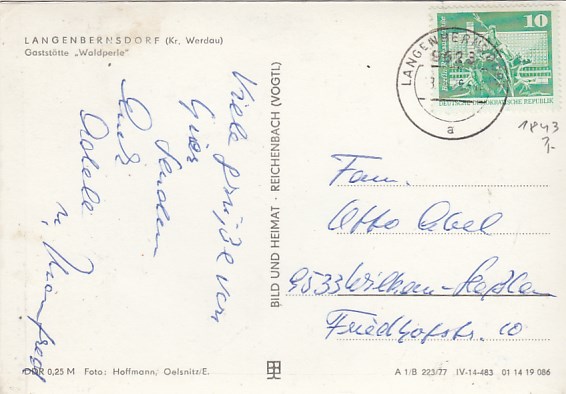 LANGENBERNSDORF (Kr. Werdau)
Gaststätte „Waldperle"
Viele Grüße von
hier
senden
Euch
Adele
u. Manfred
BILD UND HEIMAT · REICHENBACH (VOGTL)
10
DEUTSCHE DEMOKRATISCHE REPUBLIK
LANGENBERNSDORF
a
1843
Fam.
Otto Ebel
9533 Wilkau-Haßlau
Friedhofstr. 10
DDR 0,25 M Foto: Hoffmann, Oelsnitz/E.
A 1/B 223/77 IV-14-483 01 14 19 086